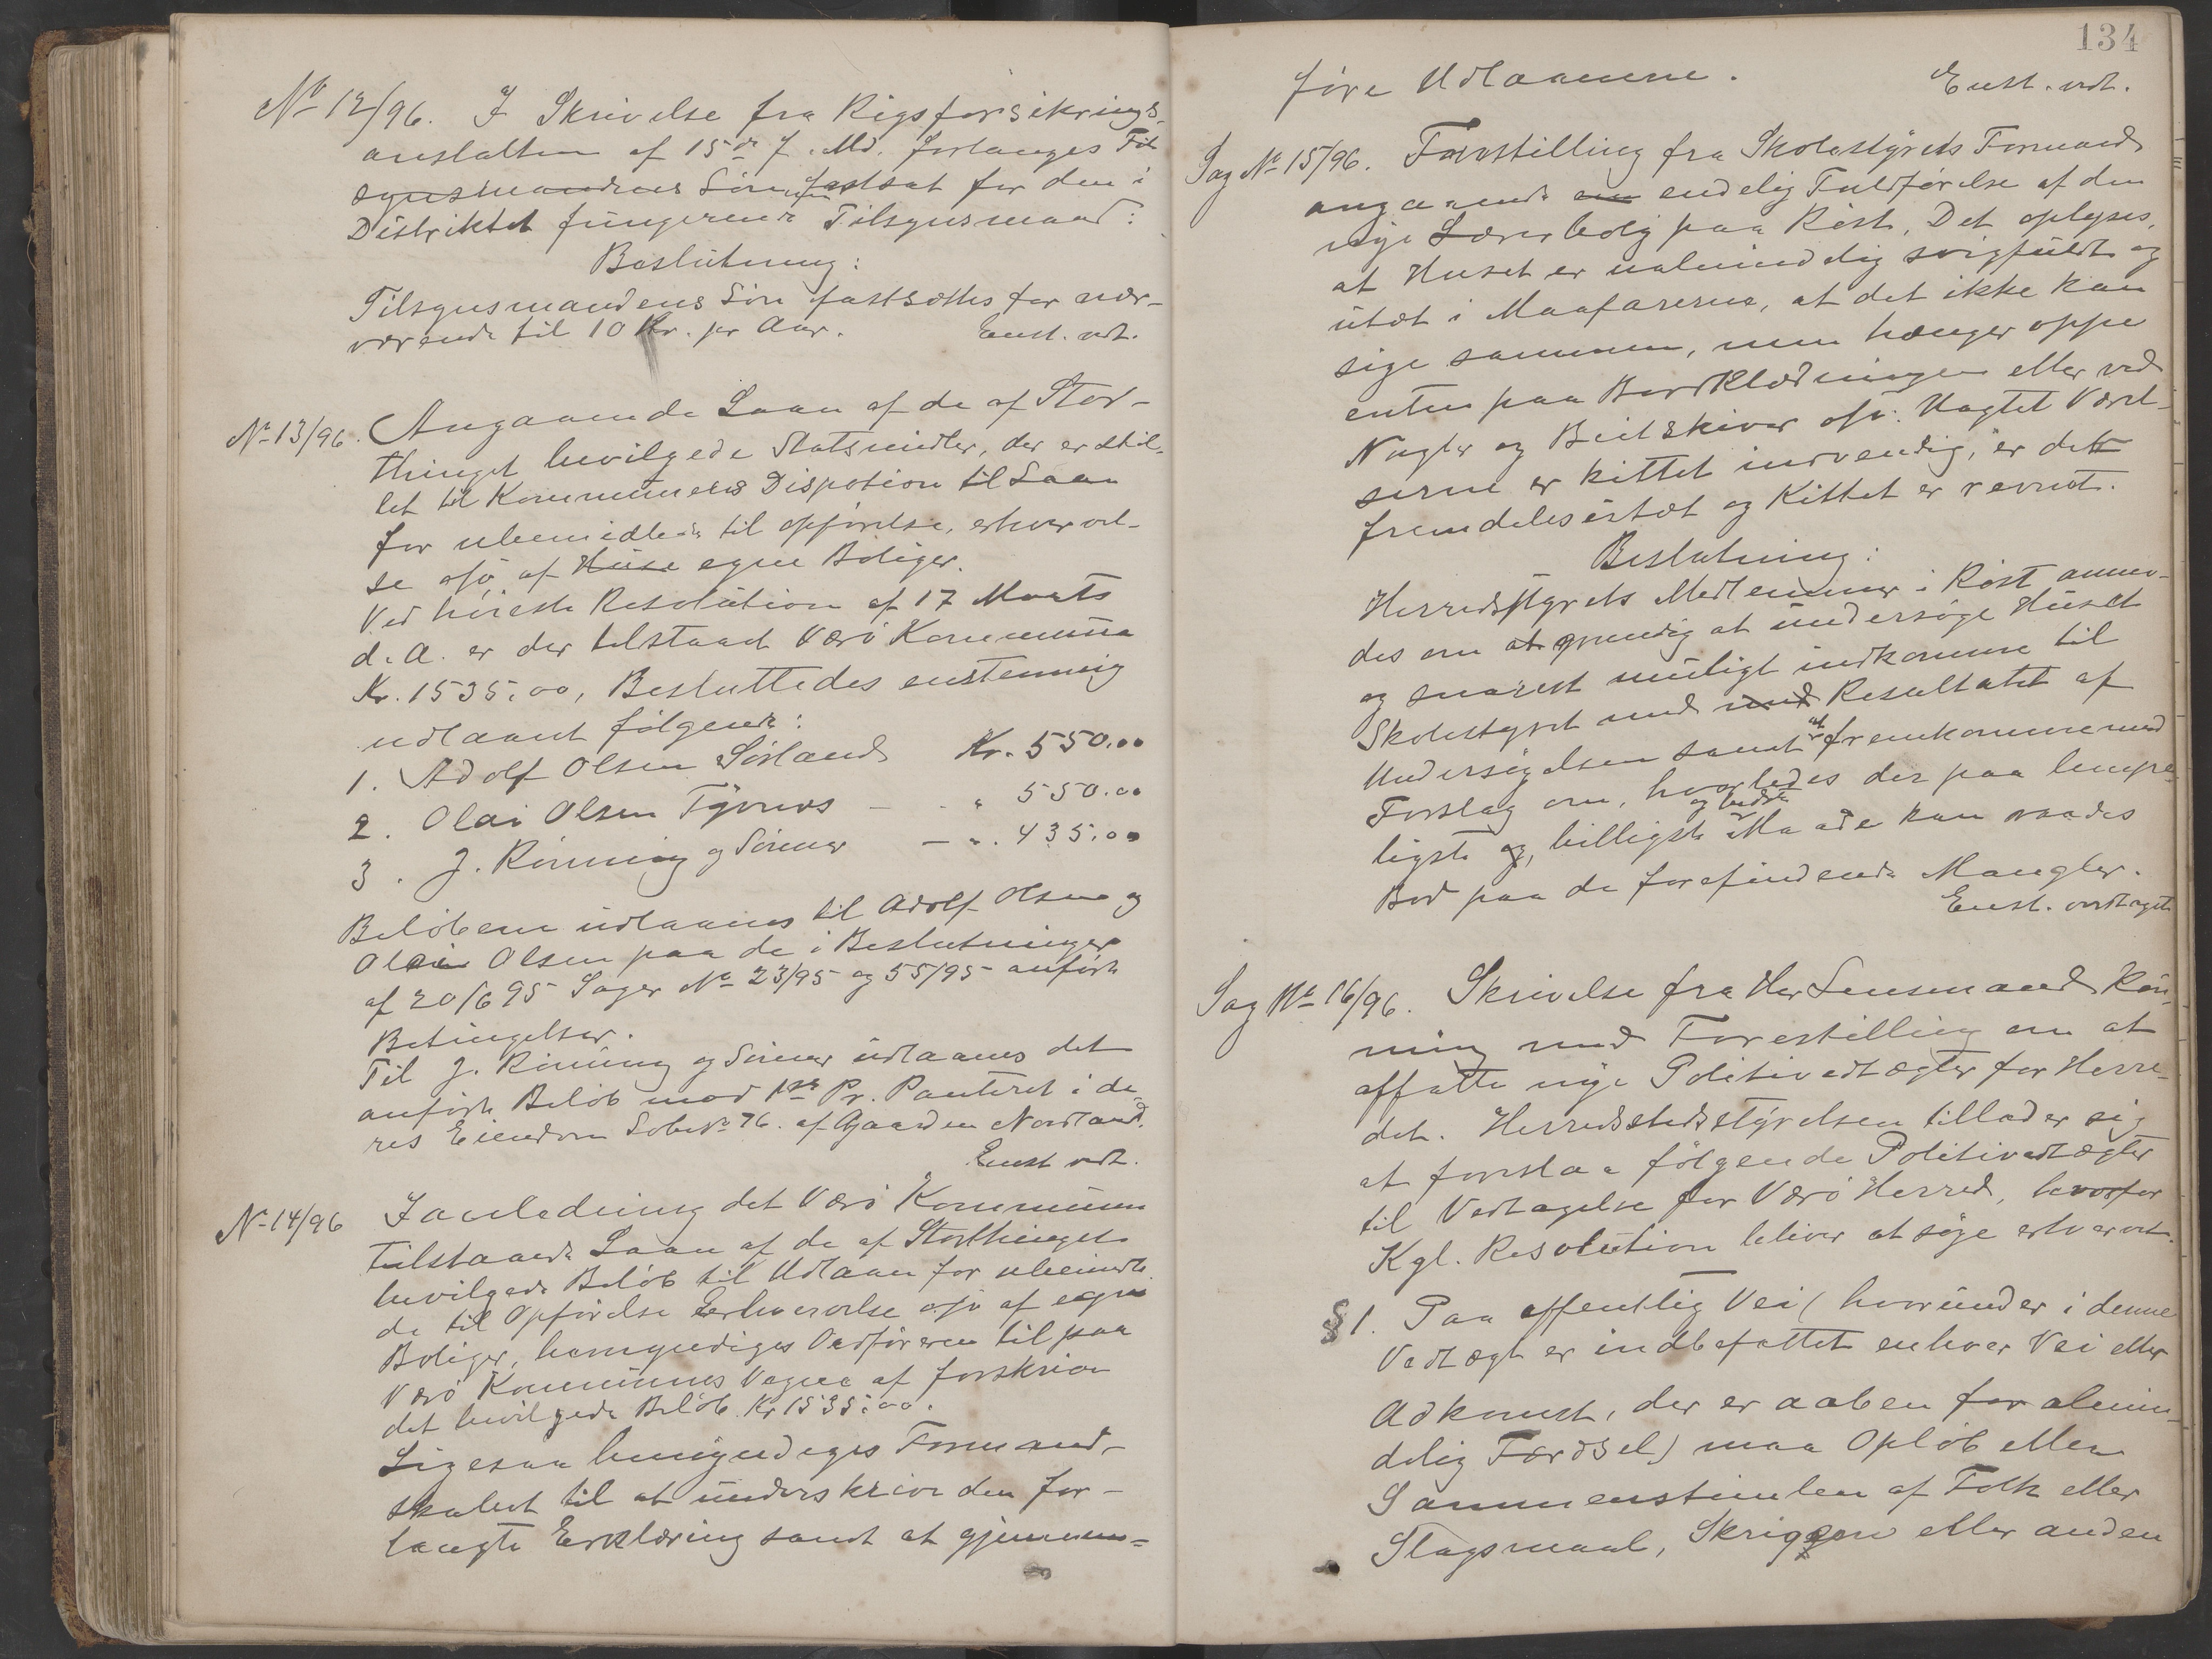 No 12/96. I Skrivelse fra Rigsforsikrings-
anstalten af 15de f. Md. forlanges Til
synsmandens Løn fastsat for den i
Distriktet fungerende Tilsynsmand:
Beslutning:
Tilsynsmandens Løn fastsættes for nær-
værende til 10 Kr. pr Aar. Enst. vedt.
No 13/96. Angaaende Laan af de af Stor-
thinget bevilgede Statsmidler, der er stil-
let til Kommunens Dispotion til Laan
for ubemidlede til opførelse, erhvervel-
se osv af Huse egne Boliger.
Ved høieste Resolution af 17 Marts
d. A. er der tilstaaet Værø Kommune
Kr. 1535.00, Besluttedes enstemmig
udlaant følgende:
1. Adolf Olsen Sørland Kr. 550.00
2. Olai Olsen Tyvnes - - " 550.00
3. J. Rønning og Sønner - " . 435.00
Beløbene udlaanes til Adolf Olsen og
Olai Olsen paa de i Beslutninger
af 20/6 95 Sager No 23/95 og 55/95 anførte
Betingelser.
Til J. Rønning og Sønner udlaanes det
anførte Beløb mod 1ste Pr. Panteret i de-
res Eiendom Løbeno 76. af Gaarden Nordland.
Enst vedt.
No 14/96 I anledning det Værø Kommune
tilstaaede Laan af de af Storthinget
bevilgede Beløb til Udlaan for ubemidle
de til Opførelse Erhvervelse osv af egne
Boliger, bemyndiges Ordføreren til paa
Værø Kommunes Vegne at forskrive
det bevilgede Beløb Kr 1535.00.
Ligesaa bemyndiges Formand-
skabet til at underskrive den for-
langte Erklæring samt at gjennem-
134
føre Udlaanene. Enst. vedt.
Sag No 15/96. Forestilling fra Skolestyrets Formand
angaaende en endelig Fuldførelse af den
nye Lærerbolig paa Røst. Det oplyses,
at Huset er ualmindelig svigfuldt og
utæt i Maafarerne, at det ikke kan
sige sammen, men hænger oppe
enten paa Bordklædningen eller ved
Nagler og Beitskiver osv. Uagtet Værel-
serne er kittet indvendig, er det
fremdeles utæt og Kittet er revnet.
Beslutning:
Herredsstyrets Medlemmer i Røst anmo-
des om at grundig at undersøge Huset
og snarest muligt indkomme til
Skolestyret med med Resultatet af
Undersøgelsen samt at fremkomme med
Forslag om, hvorledes der paa lempe-
ligste og, billigste og bedste Maade kan raades
Bod paa de forefindende Mangler.
Enst. vedtaget
Sag No 16/96. Skrivelse fra Hr Lensmand Røn-
ning med Forestilling om at
affatte nye Politivedtægter for Herre-
det. Herredsstedsstyrelsen tillader sig
at foreslaa følgende Politivedtægter
til Vedtagelse for Værø Herred, hvorfor
Kgl. Resolution bliver at søge erhvervet.
§ 1. Paa offentlig Vei (hvorunder i denne
Vedtægt er indbefattet enhver Vei eller
Adkomst, der er aaben for almin-
delig Færdsel) maa Opløb eller
Sammenstimlen af Folk eller
Slagsmaal, Skriggen eller anden